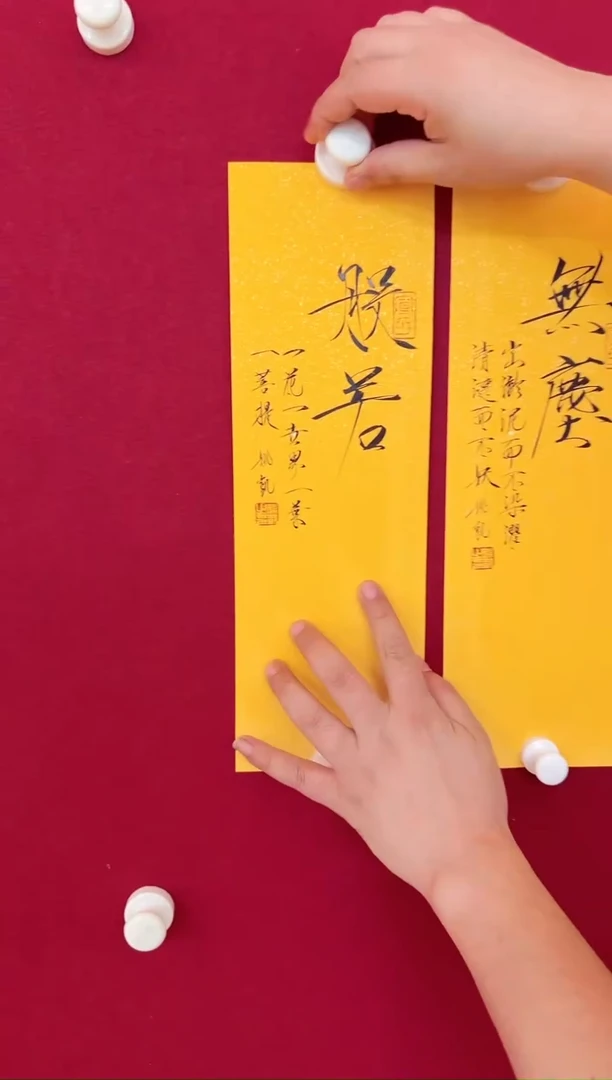 無塵
出淤泥而不染濯
清涟而不妖
般若
一花一世界一葉
一菩提